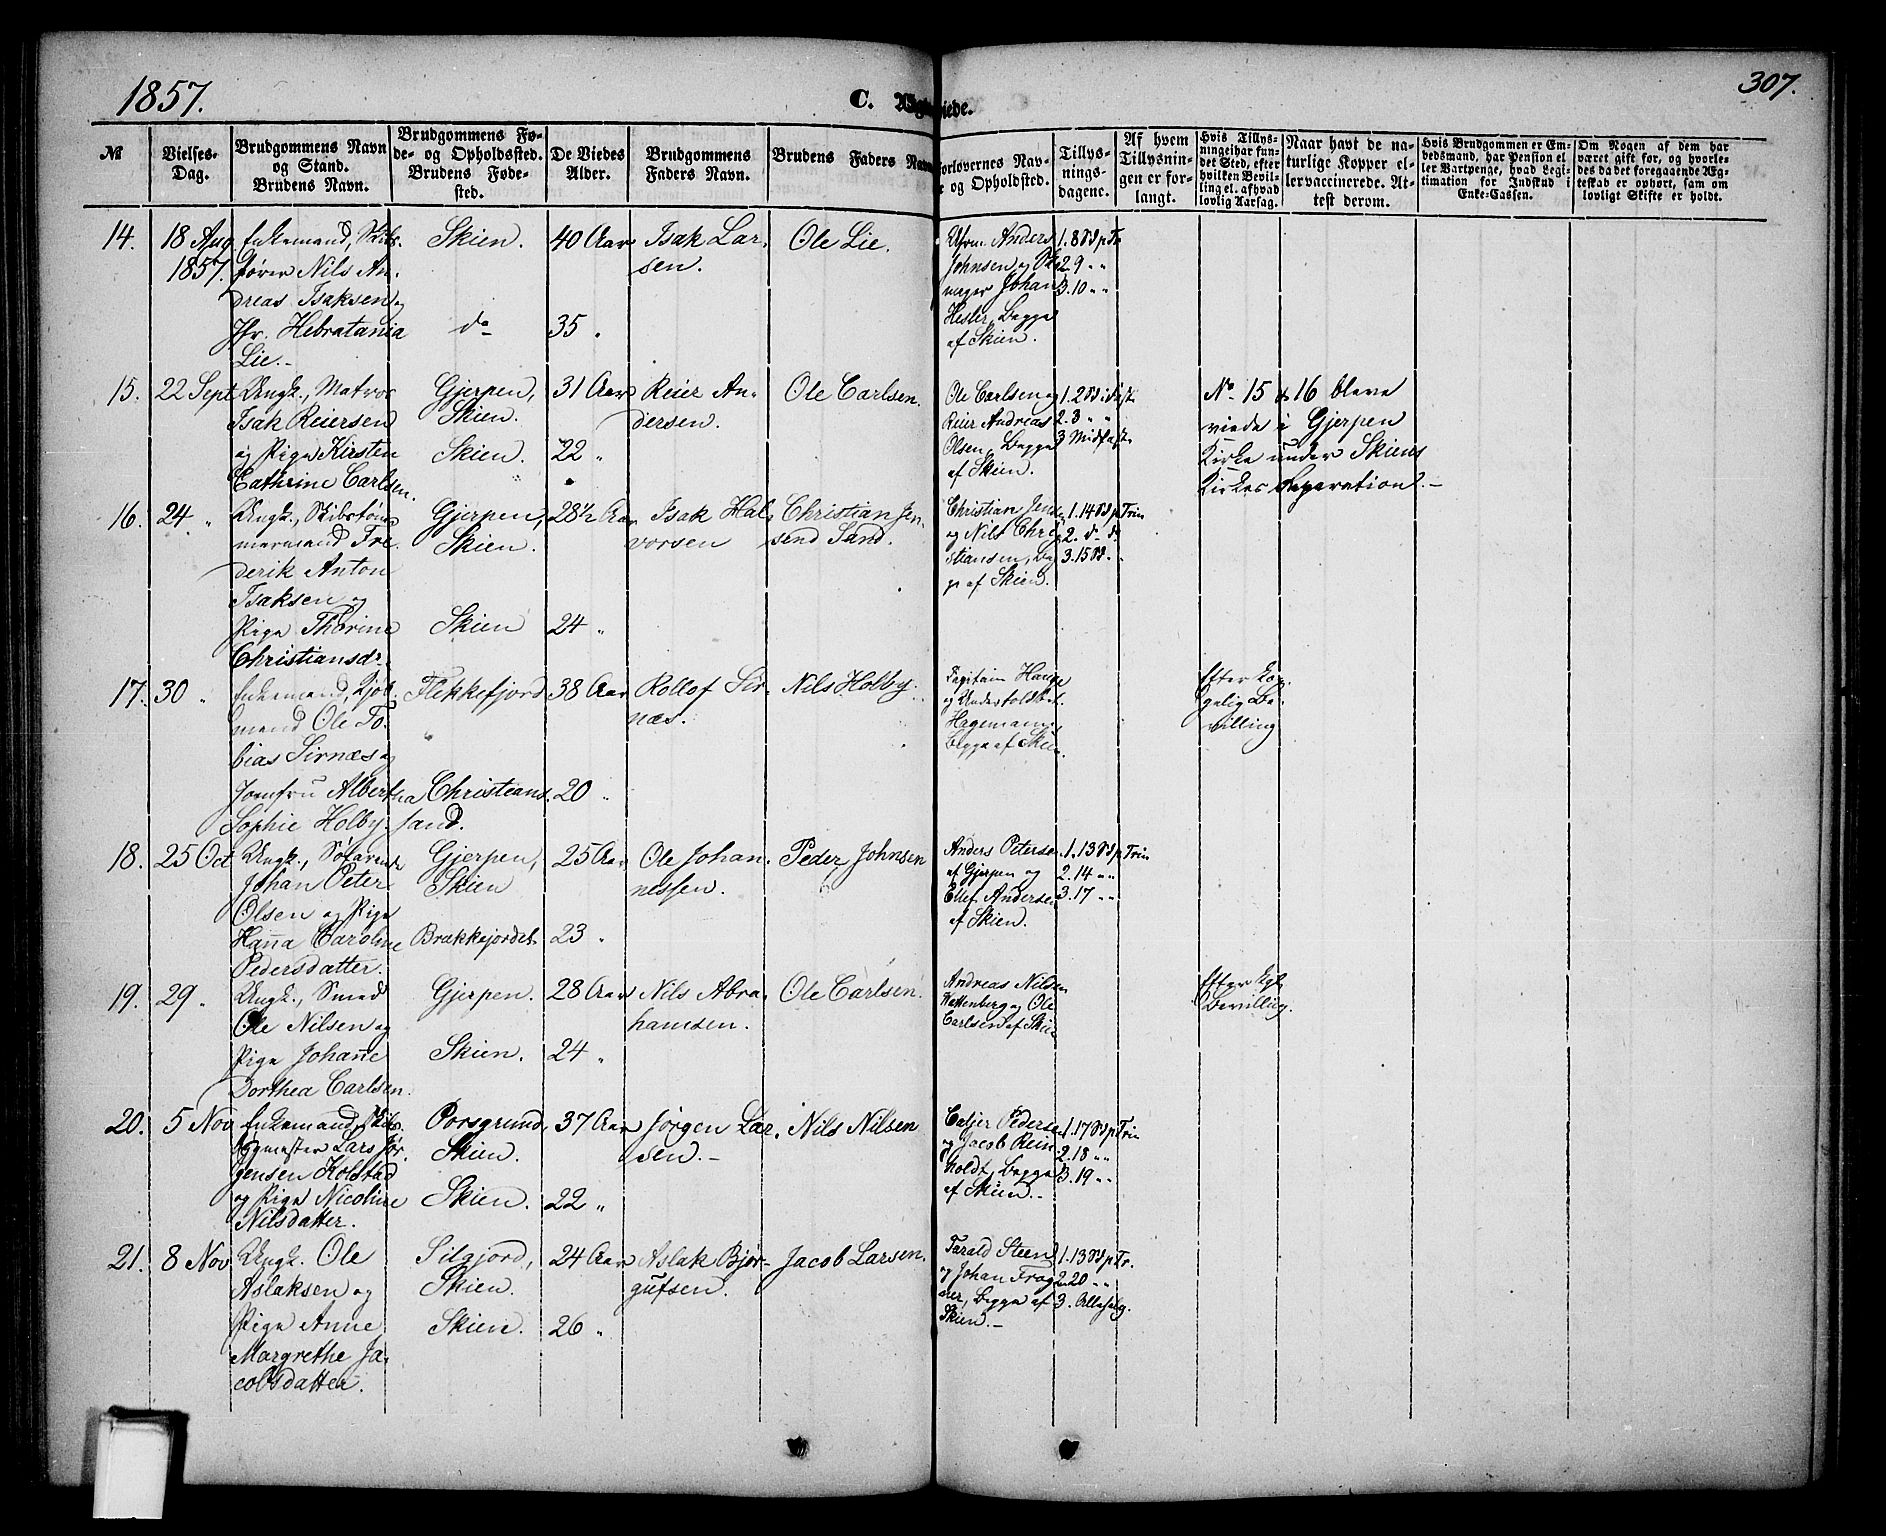 1857.
C. Ægteviede.
307.
№
Vielses-
Dag.
Brudgommens Navn
og Stand.
Brudens Navn.
Brudgommens Fø-
de- og Opholdssted.
Brudens Føde-
sted.
De Viedes
Alder.
Brudgommens
Faders Navn.
Brudens Faders Navn
Forlovernes Nav-
og Opholdsted.
Tillys-
nings-
dagene.
Af hvem
Tillysnin-
gen er for-
langt.
Hvis Tillys-
ningei har fun-
det Sted, efter
hvilken Bevil-
ling el. afhvad
lovlig Aarsag.
Naar havt de na-
turlige Kopper el-
ler vaccinerede. At-
test derom.
Hvis Brudgommen er Em-
bedsmand, har Pension el
ler Vartpenge, hvad Legi-
timation for Indskud i
Enke-Cassen.
Om Nogen af dem har
været gift for, og hvorle-
des da det foregaaende Æg-
teskab er ophørt, sam om
lovligt Skifte er holdt.
14.
18 Aug
1857.
Enkemand, Skibs-
fører Nils An-
dreas Isaksen og
Jfr. Hebratania
Lie.-
Skien.
do
40 Aar
35 "
Isak Lar-
sen.
Ole Lie.
Anders
Johnsen og
mager Johan
Hesler, Begge
af Skien.
1. 8 S p Tr
2. 9 " "
3. 10 " "
15.
22 Sept
Ungk., Matros
Isak Reiersen
og Pige Kirsten
Cathrine Carlsen.
Gjerpen,
Skien.
Skien.
31 Aar
22 "
Reier An-
dersen.
Ole Carlsen.
Ole Carlsen og
Reier Andreas
Olsen, Begge
af Skien.
1. 2 S i Fast.
2. 3 " "
3 Midfast.
No 15 & 16 bleve
viede i Gjerpen
Kirke under Skiens
Kirkes Reparation.-
16.
24 "
Ungk., Skibstøm-
mermand Fre-
derik Anton
Isaksen og
Pige Thorine
Christiansdr.
Gjerpen,
Skien.
Skien
28½ Aar
24 "
Isak Hal-
vorsen
Christian Jen-
send Sand.
Christian Jensen
og Nils Chri-
stiansen, Beg-
ge af Skien.
1. 14 S p Trin
2. do do
3. 15 S. "
17.
30 "
Enkemand, Kjøb-
mand Ole To-
bias Sirnæs og
Jomfru Albertha
Sophie Holby.
Flekkefjord
Christians-
sand.
38 Aar
20 "
Rollof Sir-
næs.
Nils Holby.
Capitain Hauge
og
Hagemann,
Begge af Skien.
Efter Kon-
gelig Be-
villing
18.
25 Oct
Ungk., Søfarende
Johan Peter
Olsen og Pige
Hanna Caroline
Pedersdatter.
Gjerpen,
Skien
Brækkejordet
25 Aar
23 "
Ole Johan-
nessen.
Peder Johnsen
Anders Petersen
af Gjerpen og
Ellef Andersen
af Skien.
1. 13 S p Trin
2. 14 " "
3. 17 " "
19.
29 "
Ungk., Smed
Ole Nilsen og
Pige Johanne
Dorthea Carlsen.
Gjerpen.
Skien.
28 Aar
24 "
Nils Abra-
hamsen.
Ole Carlsen.
Andreas Nilsen
Wattenberg og Ole
Carlsen af Skien
Efter Kgl
Bevilling.
20.
5 Nov
Enkemand, Skibs-
bygmester Lars Jør-
gensen Kolstad
og Pige Nicoline
Nilsdatter.
Porsgrund,
Skien.
Skien.
37 Aar
22 "
Jørgen Lar-
sen.-
Nils Nilsen
Pedersen
og Jacob Rein-
holdt, Begge
af Skien.-
1. 17 S p Trin
2. 18 " "
3. 19 " "
21.
8 Nov
Ungk. Ole
Aslaksen og
Pige Anne
Margrethe Ja-
cobsdatter.
Silgjord,
Skien.
Skien.
24 Aar
26 "
Aslak Bjør-
gufsen.
Jacob Larsen.
Tarald Steen
og Johan Frog-
ner, Begge af
Skien.-
1. 13 S p Tr.
2. 20 " "
3. Allehelg.